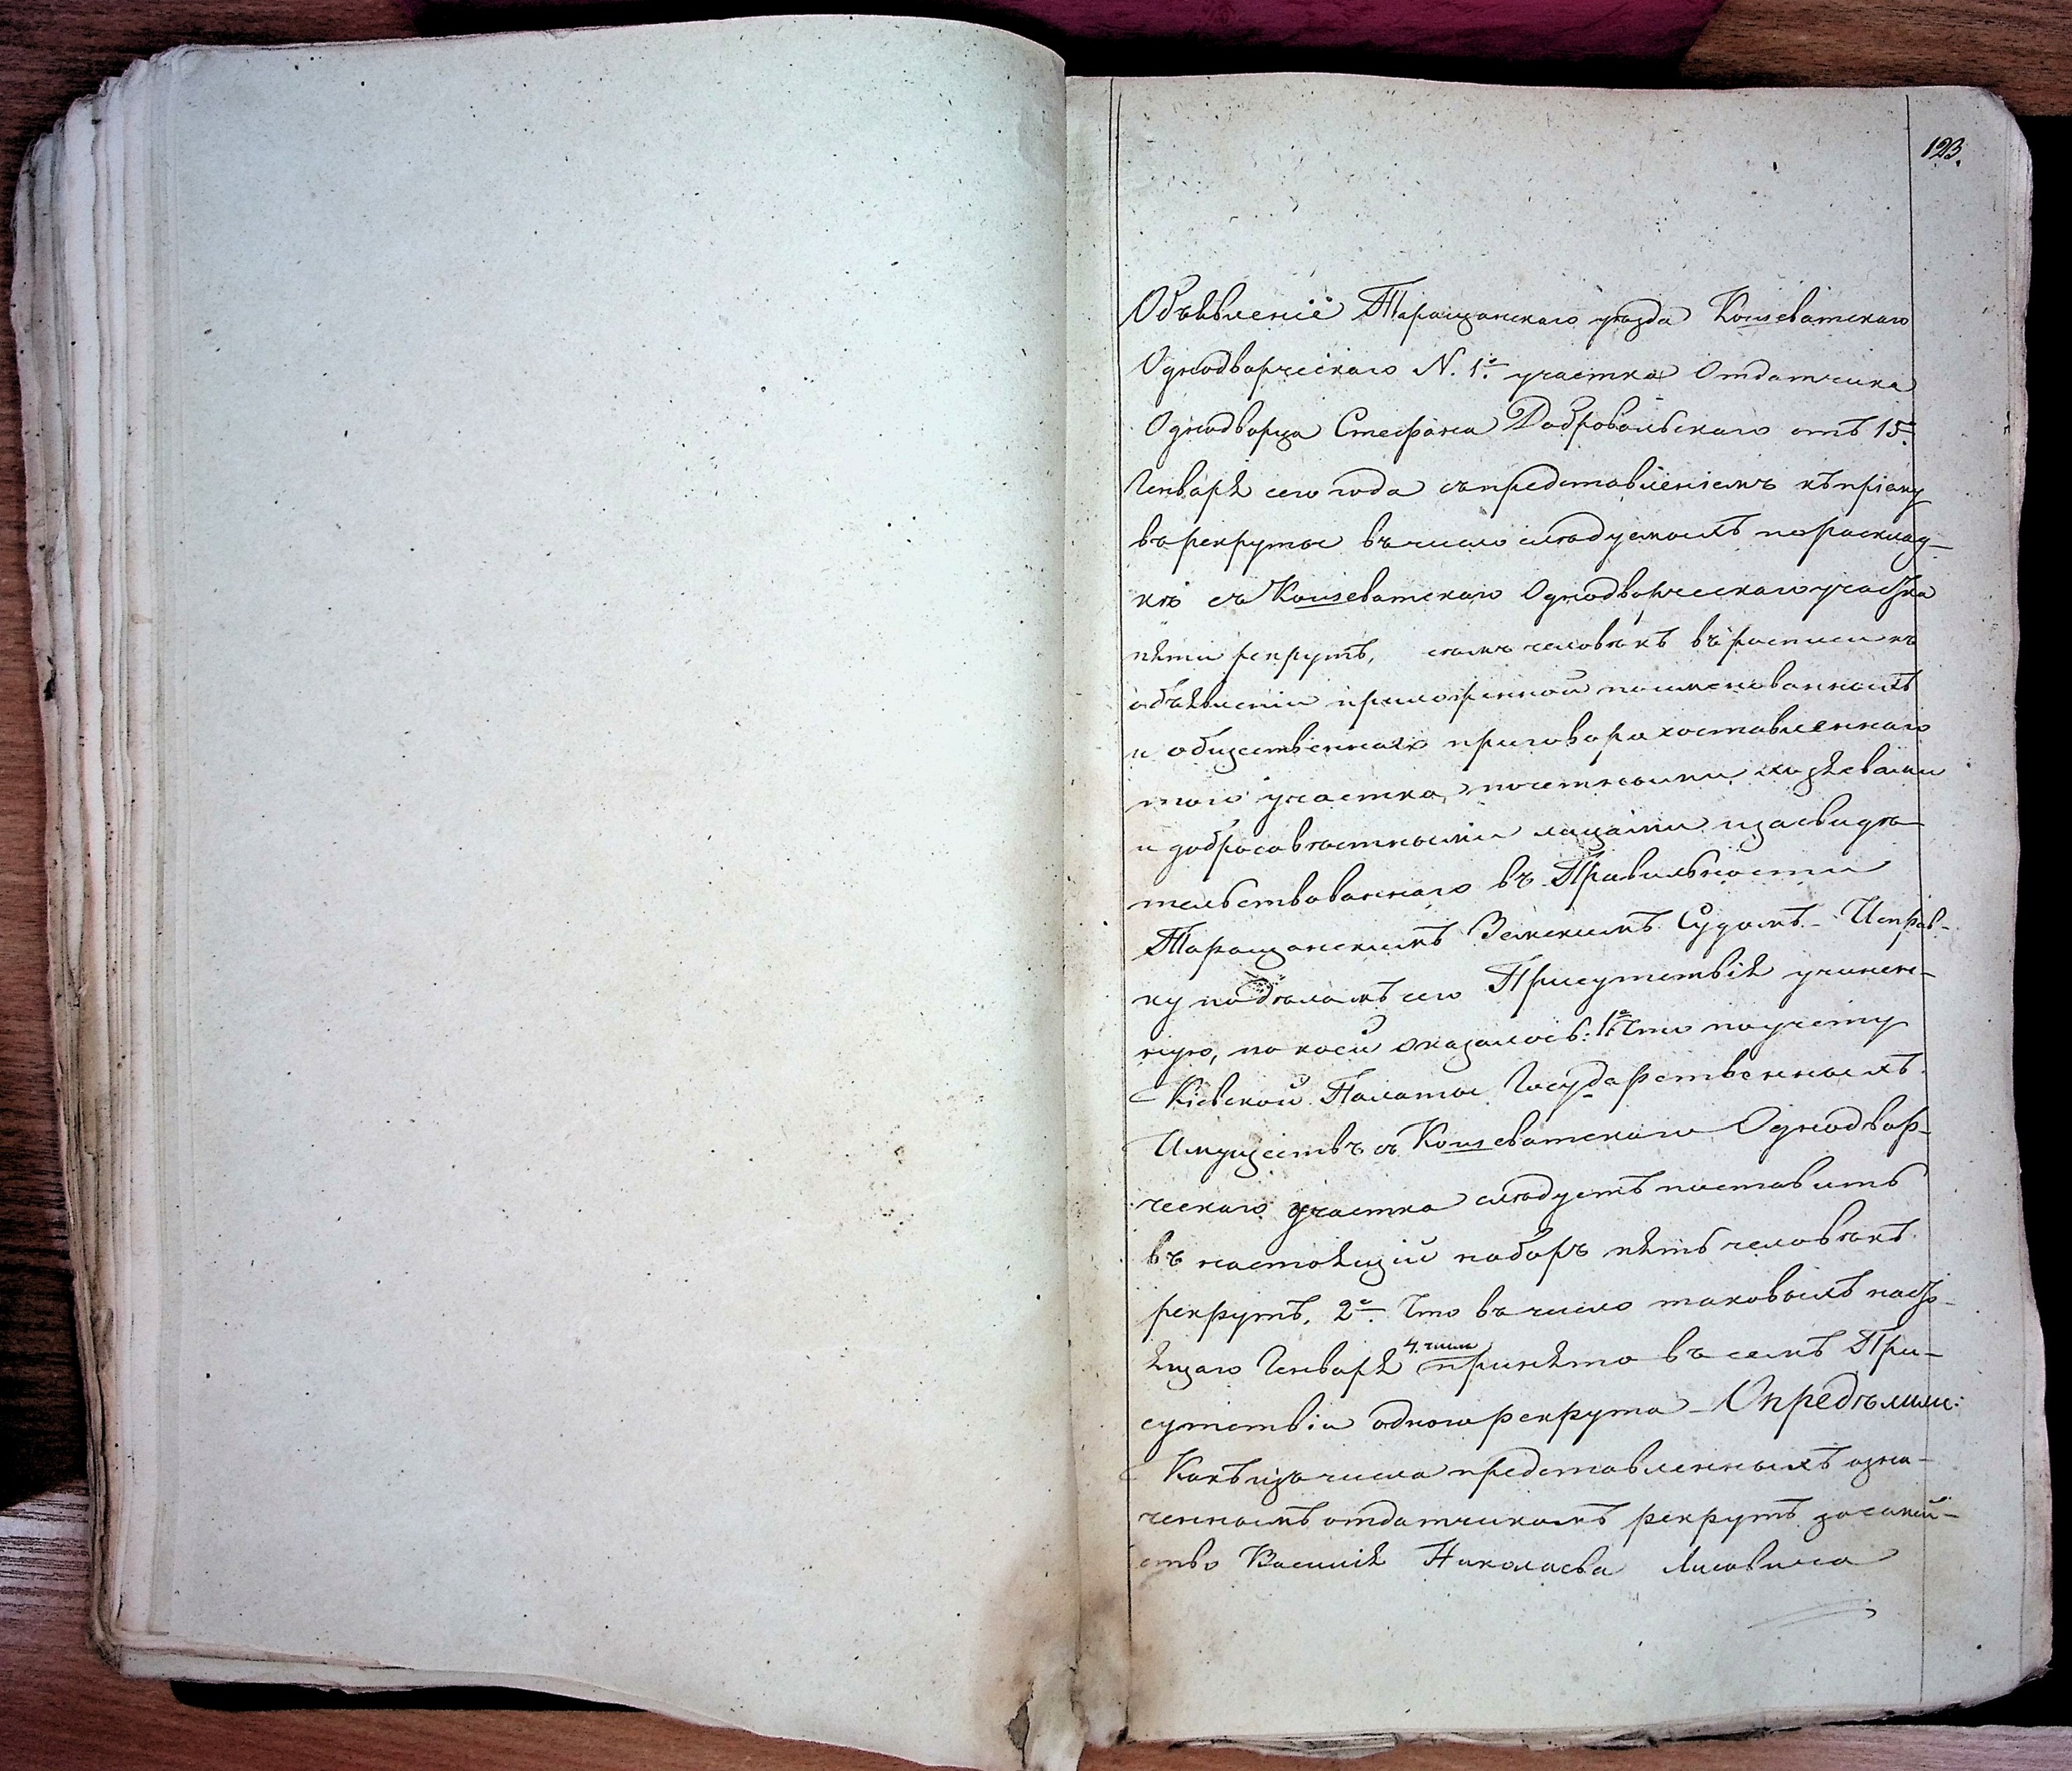 123.
Объявленіе Таращанскаго уѣзда Кошеватскаго
Однодворческаго N. 1º. участка Отдатчика
Однодворца Стефана Добровольскаго отъ 15º.
Генваря сего года съ представленіемъ къ пріему
въ рекруты въ число слѣдуемыхъ по расклад-
кѣ съ Кошеватскаго Однодворческаго участка
пяти рекрутъ, человѣкъ въ росписи къ
объявленіи приложенной поименованныхъ
и общественнаго приговора составленнаго
того участка, почетными хозяевами
и добросовѣстными лицами и засвидѣ-
тельствованнаго въ Правильности
Таращанскимъ Земскимъ Судомъ. - Исправ-
ку по дѣламъ сего Присутствія учинен-
ную, по коей оказалось: 1º. Что по учету
Кіевской Палаты Государственныхъ
Имуществъ съ Кошеватскаго Однодвор-
ческаго участка слѣдуетъ поставить
въ настоящій наборъ пять человѣкъ
рекрутъ. 2º. Что въ число таковыхъ насто-
ящаго Генваря 4. числа принято въ семъ При-
сутствіи одного рекрута - Опредѣлили:
Какъ изъ числа представленныхъ озна-
ченнымъ отдатчикомъ рекрутъ за семей-
ство Василія Николаева